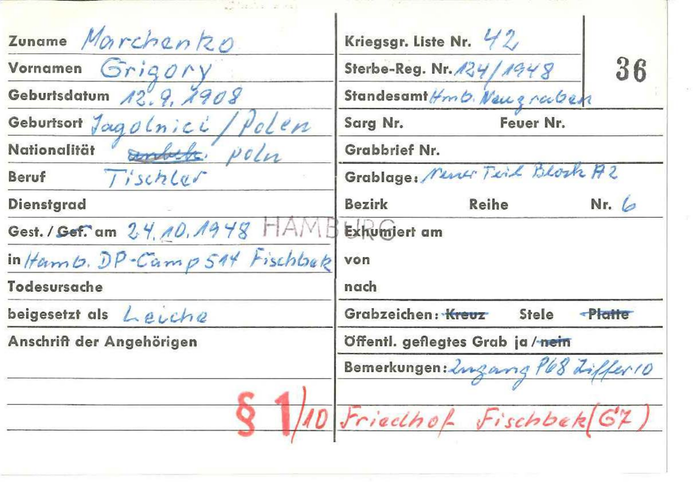 Zuname Marchenko
Vornamen Grigory
Geburtsdatum 12.9.1908
Geburtsort Jagolnici / Polen
Nationalität unbek. poln
Beruf Tischler
Dienstgrad
Gest. / Gef. am 24.10.1948 HAMBURG
in Hamb. DP-Camp 514 Fischbek
Todesursache
beigesetzt als Leiche
Anschrift der Angehörigen
§ 1/10
Kriegsgr. Liste Nr. 42
Sterbe-Reg. Nr. 124/1948
36
Standesamt Hmb. Neugraben
Sarg Nr. Feuer Nr.
Grabbrief Nr.
Grablage: Neuer Teil Block A2
Bezirk Reihe Nr. 6
Exhumiert am
von
nach
Grabzeichen: Kreuz Stele Platte
Öffentl. geflegtes Grab ja / nein
Bemerkungen: Zugang P68 Ziffer 10
Friedhof Fischbek (G7)